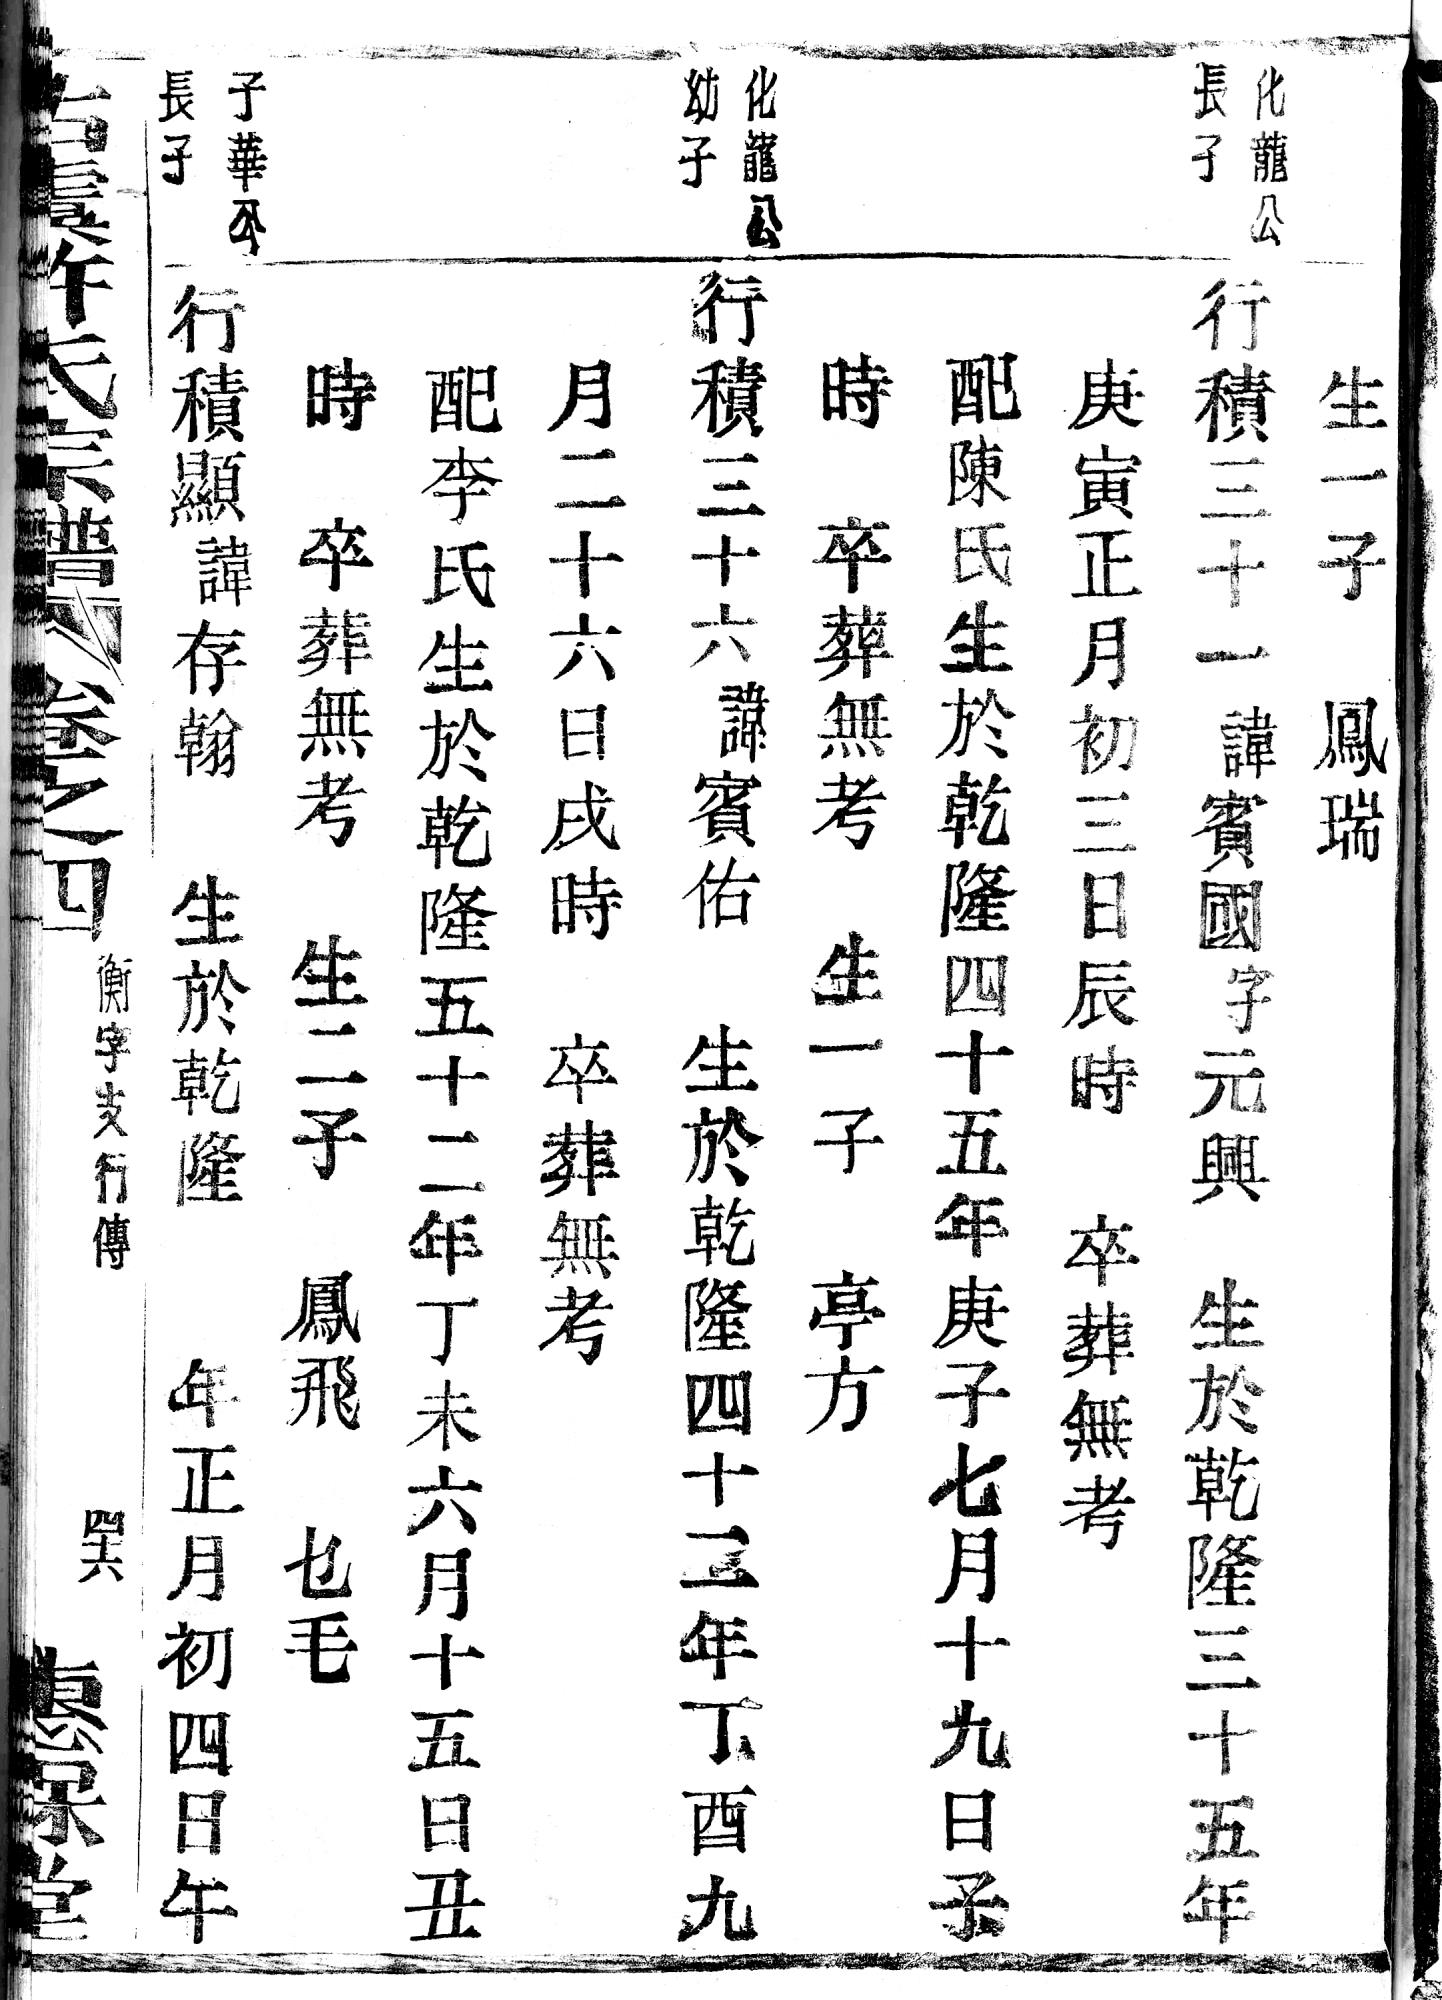 生一子 鳳瑞
化龍公
長子
行積三十一 諱賓國字元興 生於乾隆三十五年
庚寅正月初三日辰時 卒葬無考
配陳氏生於乾隆四十五年庚子七月十九日子
時 卒葬無考 生一子 亭方
化龍公
幼子
行積三十六諱賓佑 生於乾隆四十二年丁酉九
月二十六日戌時 卒葬無考
配李氏生於乾隆五十二年丁未六月十五日丑
時 卒葬無考 生二子 鳳飛 乜毛
子華公
長子
行積顯諱存翰 生於乾隆 年正月初四日午
古虞許氏宗譜 卷之四 衡字支行傳 四十六 堂